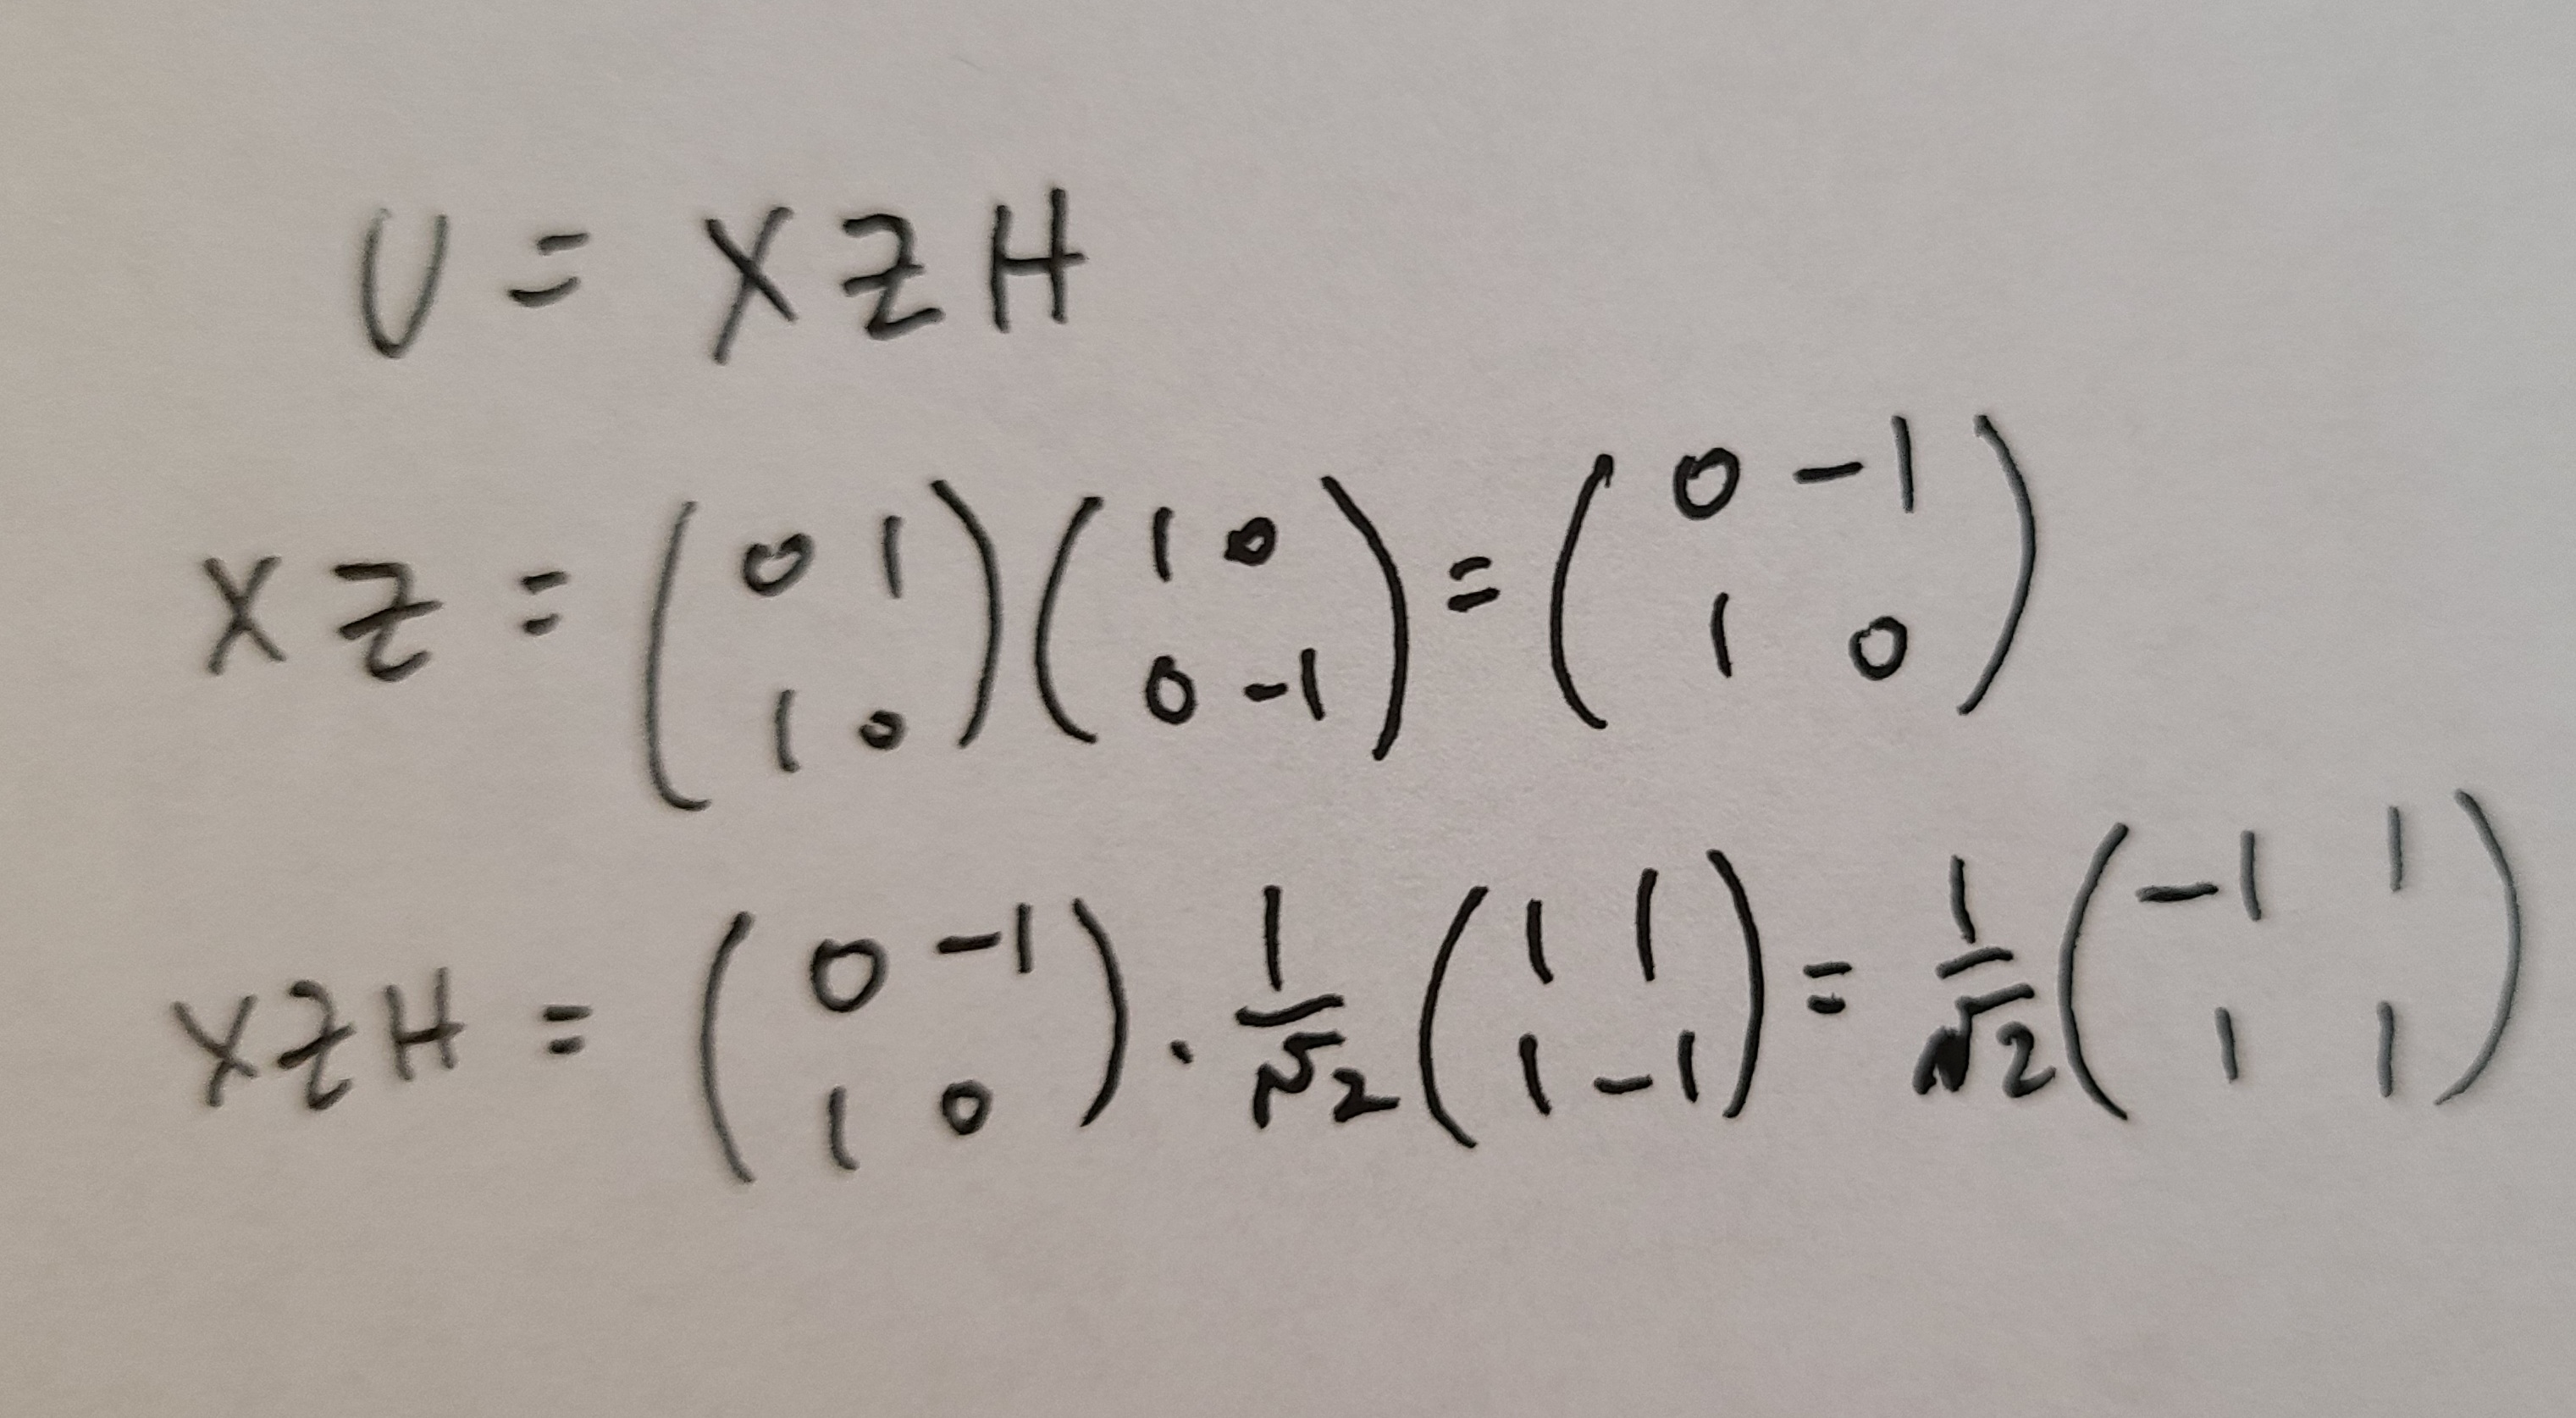 U = XZH
XZ = (0 1 / 1 0) (1 0 / 0 -1) = (0 -1 / 1 0)
XZH = (0 -1 / 1 0) · 1/√2 (1 1 / 1 -1) = 1/√2 (-1 1 / 1 1)